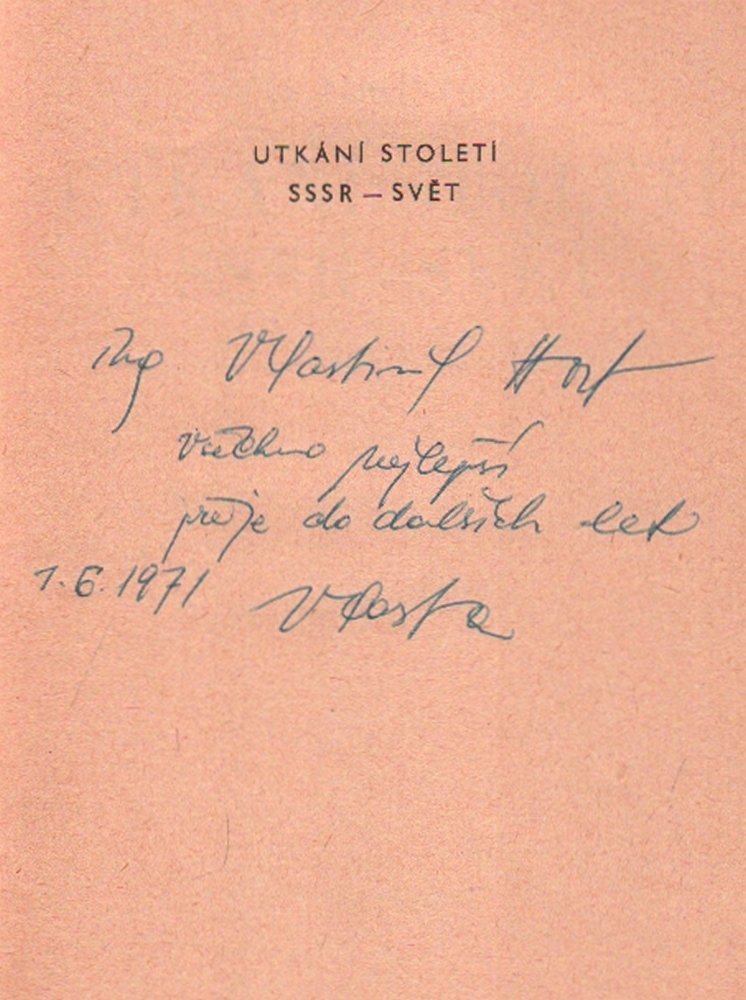 UTKÁNÍ STOLETÍ
SSSR – SVĚT
Ing Vlastimil Hort
všechno nejlepší
přeje do dalších let
1.6.1971 Vlasta